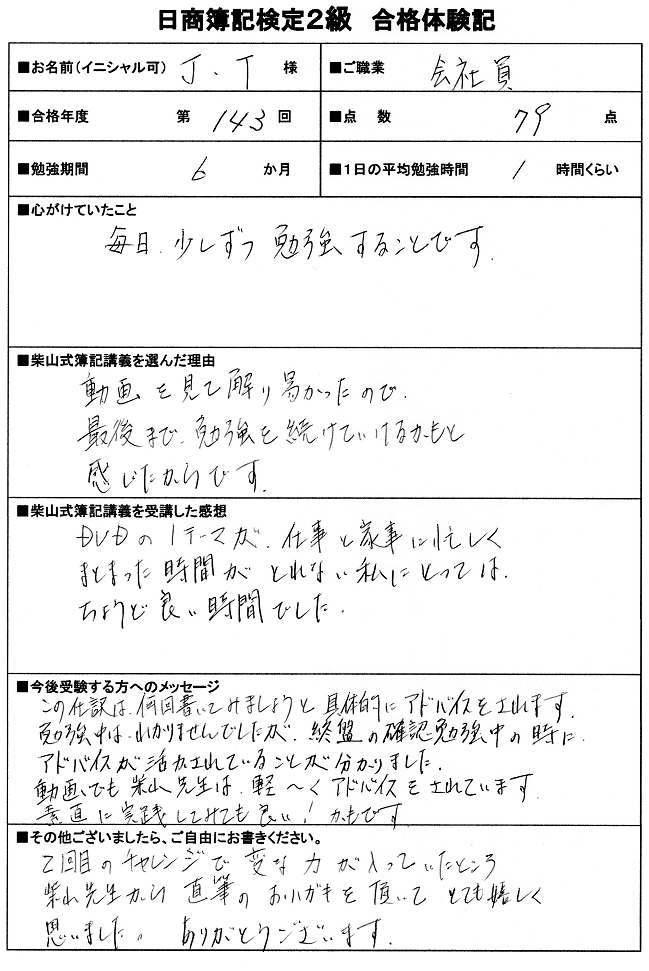 日商簿記検定2級 合格体験記
■お名前(イニシャル可) J.T 様 ■ご職業 会社員
■合格年度 第 143 回 ■点 数 79 点
■勉強期間 6 か月 ■1日の平均勉強時間 1 時間くらい
■心がけていたこと
毎日、少しずつ勉強することです.
■柴山式簿記講義を選んだ理由
動画を見て解り易かったので、
最後まで、勉強を続けていけるかもと
感じたからです.
■柴山式簿記講義を受講した感想
DVDの1テーマが、仕事と家事に忙しく
まとまった時間がとれない私にとっては、
ちょうど良い時間でした.
■今後受験する方へのメッセージ
この仕訳は、何回書いてみましょうと具体的にアドバイスをされます.
勉強中は、わかりませんでしたが、終盤の確認勉強中の時に、
アドバイスが活かされていることが分かりました.
動画でも柴山先生は、軽〜くアドバイスをされています.
素直に実践してみても良い!かもです
■その他ございましたら、ご自由にお書きください。
2回目のチャレンジで変な力が入っていたところ
柴山先生から直筆のおハガキを頂いてとても嬉しく
思いました。ありがとうございます.